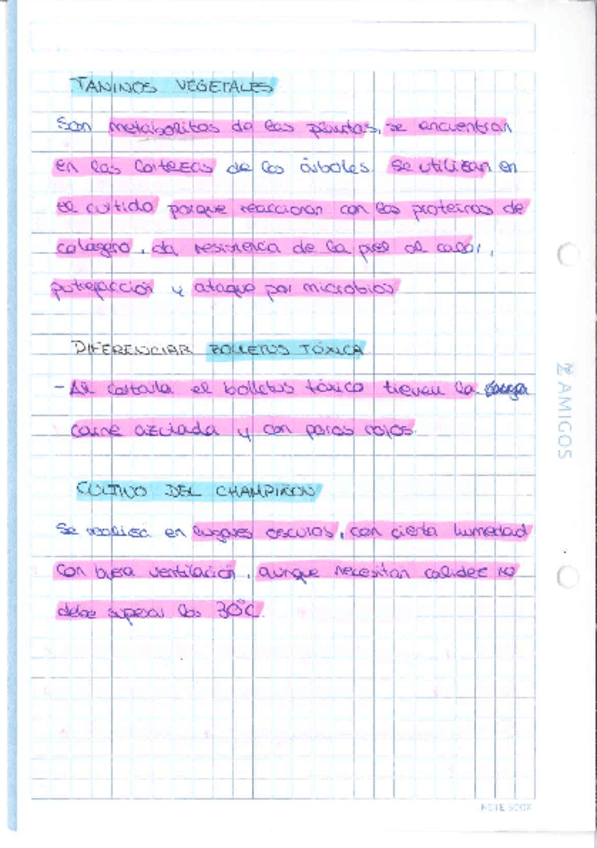 TANINOS VEGETALES
Son metabolitos de las plantas, se encuentran
en las cortezas de los árboles. Se utilizan en
el curtido porque reaccionan con las proteinas de
colágeno, da resistencia de la piel al calor,
putrefacción y ataque por microbios
DIFERENCIAR BOLLETUS TÓXICA
- Al cortarla el bolletus tóxico tienen la
carne azulada y con poros rojos.
CULTIVO DEL CHAMPIÑON
Se realiza en lugares oscuros, con cierta humedad
con buena ventilación, aunque necesitan calidez no
debe superar los 30ºC.
AMIGOS
NOTE BOOK